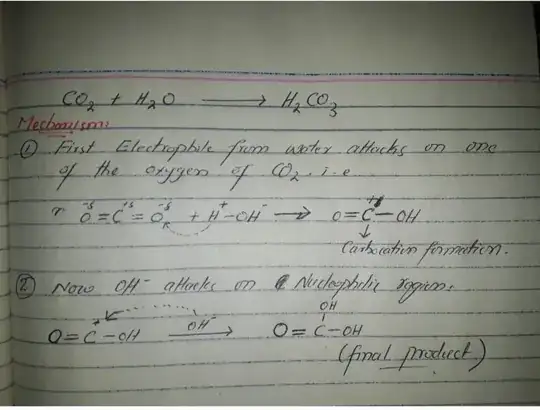 CO₂ + H₂O ⟶ H₂CO₃
Mechanism:
① First Electrophile from water attacks on one
of the oxygen of CO₂. i.e
O⁻ᵟ = C⁺ᵟ = O⁻ᵟ + H⁺–OH⁻ ⟶ O=C⁺–OH
↓
Carbocation formation.
② Now OH⁻ attacks on Nucleophilic region:
OH
O=C⁺–OH OH⁻ ⟶ O=C–OH
(final product)